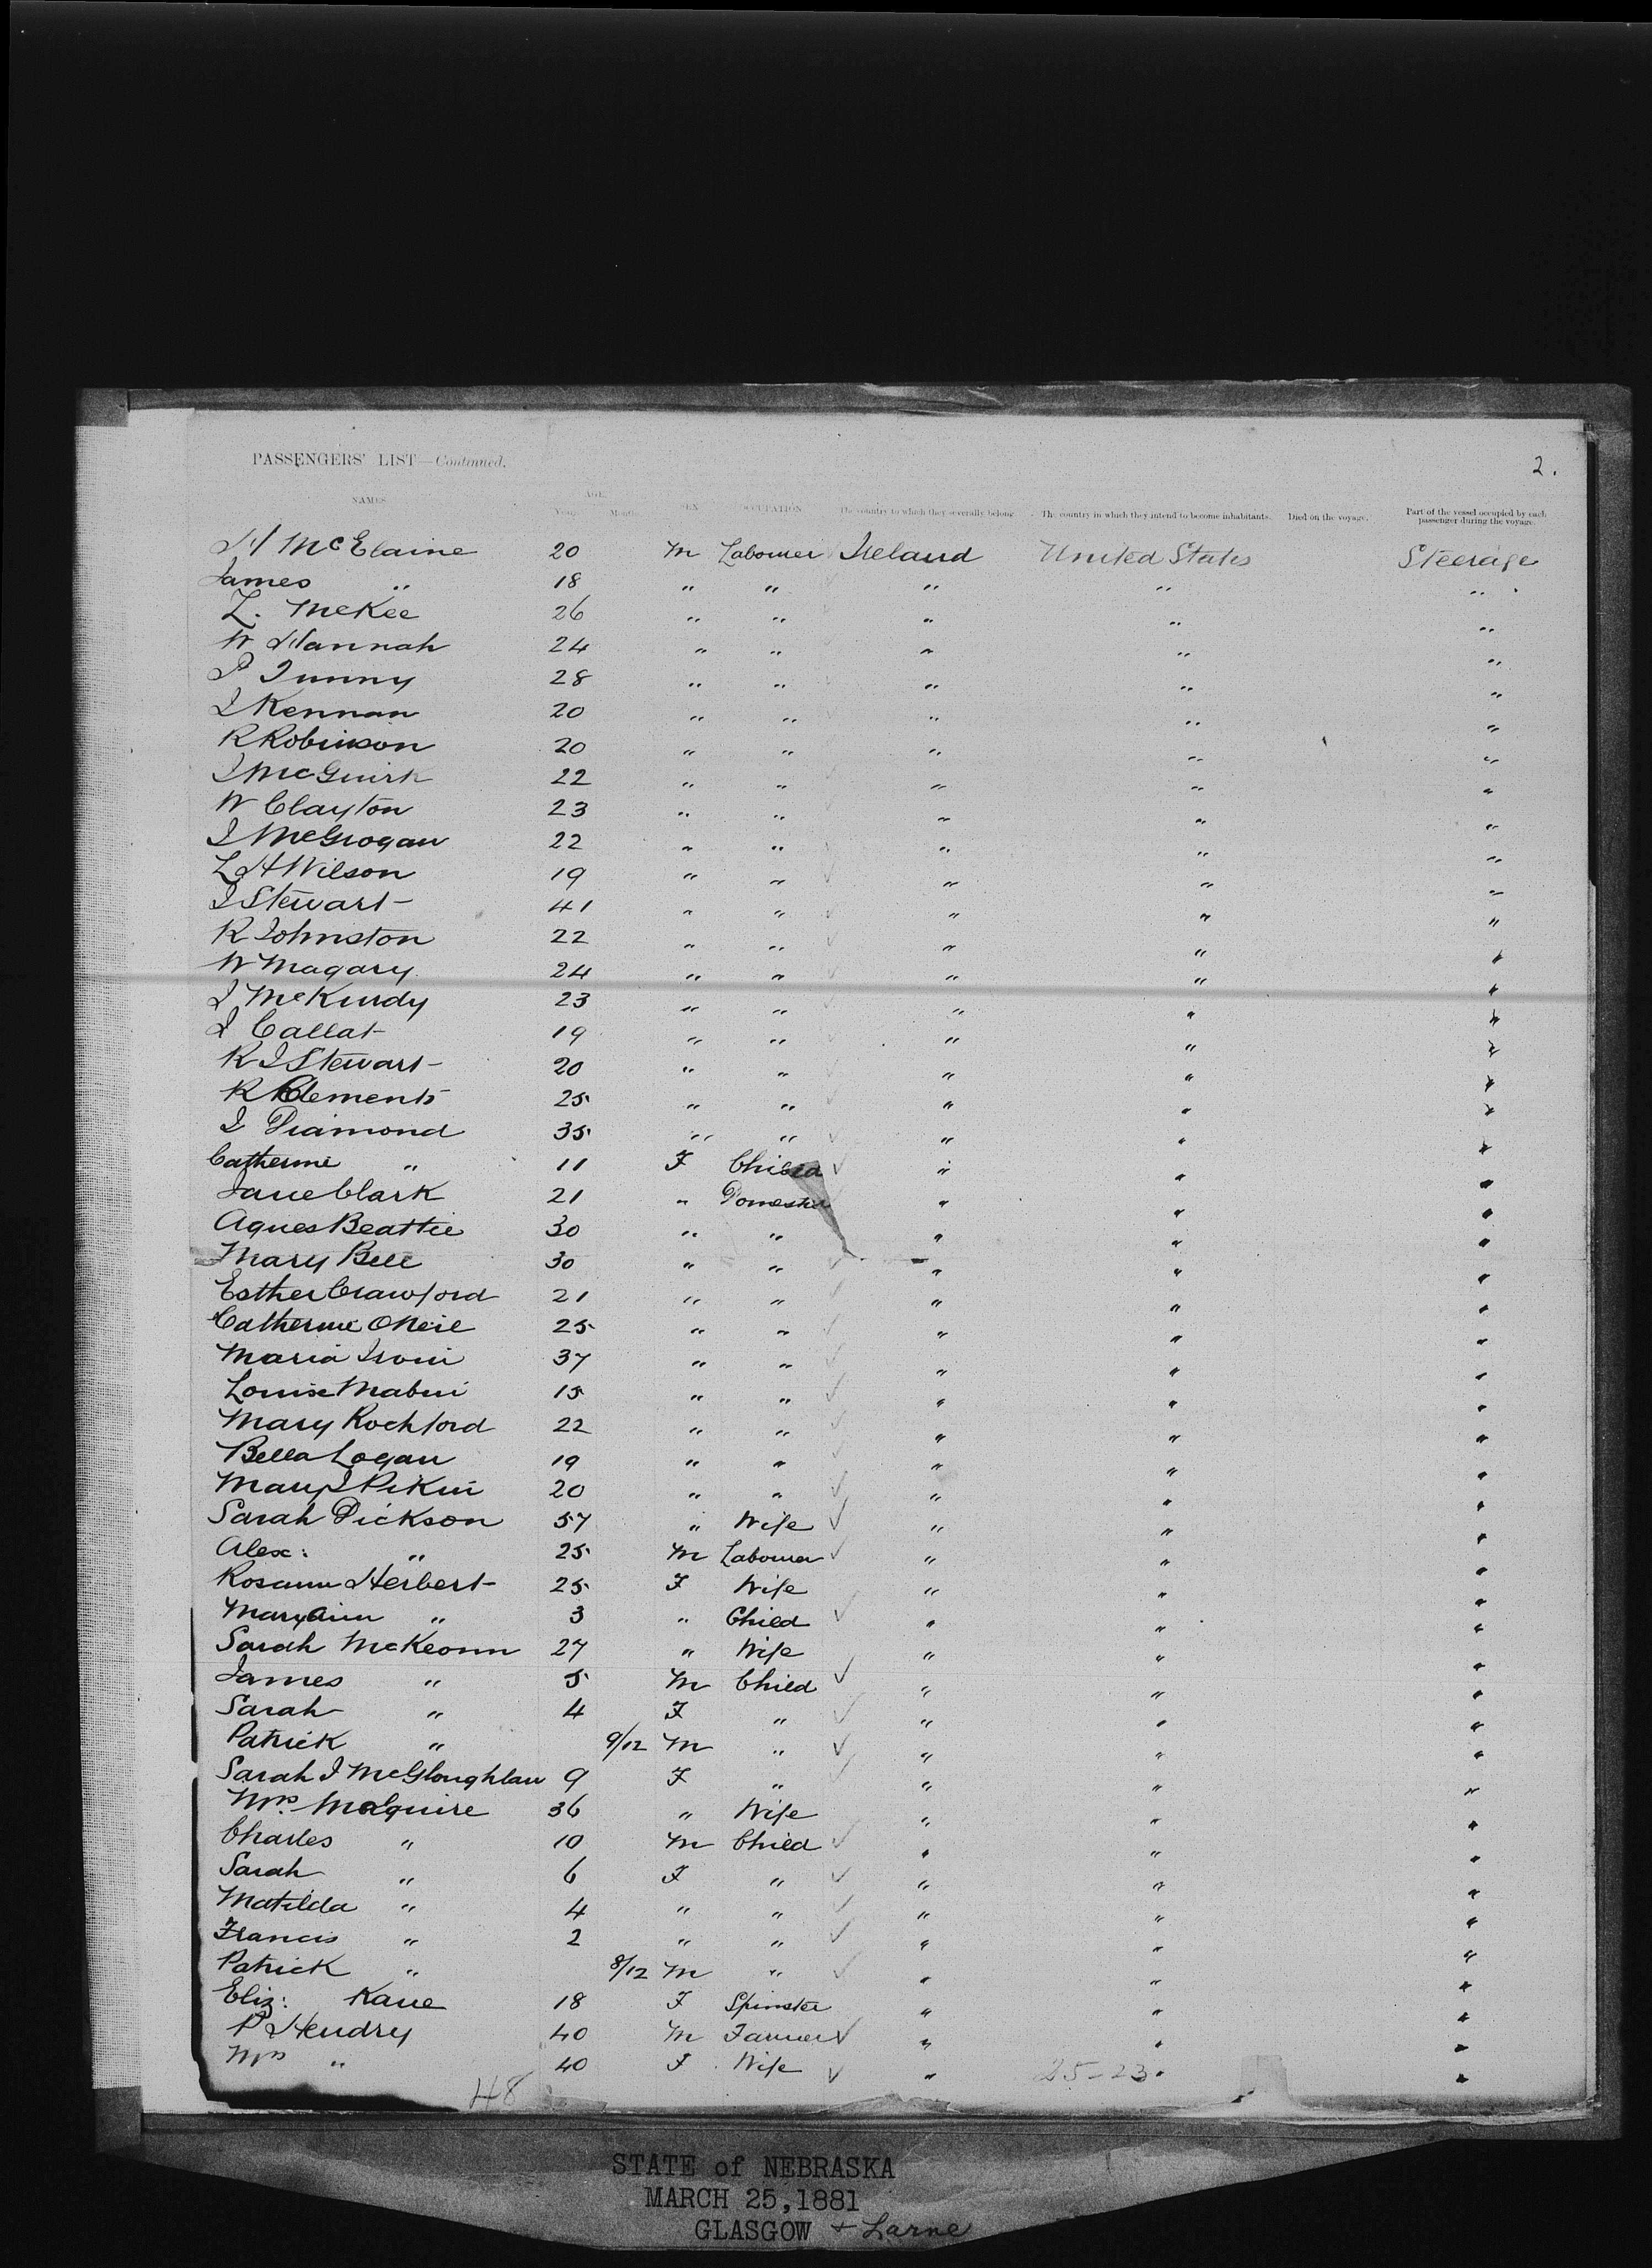 PASSENGERS' LIST—Continued.
2.
NAMES AGE SEX OCCUPATION The country to which they severally belong. The country in which they intend to become inhabitants. Died on the voyage. Part of the vessel occupied by each passenger during the voyage.
Years Months
H McElaine 20 M Labourer Ireland United States Steerage
James " 18 " " " " "
McKee 26 " " " " "
W Hannah 24 " " " " "
P 28 " " " " "
J Kennan 20 " " " " "
R Robinson 20 " " " " "
J McGuirk 22 " " " " "
W Clayton 23 " " " " "
J McGrogan 22 " " " " "
H Wilson 19 " " " " "
J Stewart 41 " " " " "
R Johnston 22 " " " " "
W Magary 24 " " " " "
J McKurdy 23 " " " " "
J Callat 19 " " " " "
R J Stewart 20 " " " " "
R Clements 25 " " " " "
J Diamond 35 " " " " "
Catherine " 11 F Child " " "
Jane Clark 21 " Domestic " " "
Agnes Beattie 30 " " " " "
Mary Bell 30 " " " " "
Esther Crawford 21 " " " " "
Catherine ONeil 25 " " " " "
Maria 37 " " " " "
Louise 15 " " " " "
Mary Rochford 22 " " " " "
Bella Logan 19 " " " " "
Mary J 20 " " " " "
Sarah Dickson 57 " Wife " " "
Alex: " 25 M Labourer " " "
Rosann Herbert 25 F Wife " " "
Mary Ann " 3 " Child " " "
Sarah McKeown 27 " Wife " " "
James " 5 M Child " " "
Sarah " 4 F " " " "
Patrick " 9/12 M " " " "
Sarah J McGloughlan 9 F " " " "
Mrs. McGuire 36 " Wife " " "
Charles " 10 M Child " " "
Sarah " 6 F " " " "
Matilda " 4 " " " " "
Francis " 2 " " " " "
Patrick " 8/12 M " " " "
Eliz: Kane 18 F Spinster " " "
P Hendry 40 M Farmer " " "
Mrs " 40 F Wife " " "
25-23
48
STATE of NEBRASKA
MARCH 25, 1881
GLASGOW + Larne